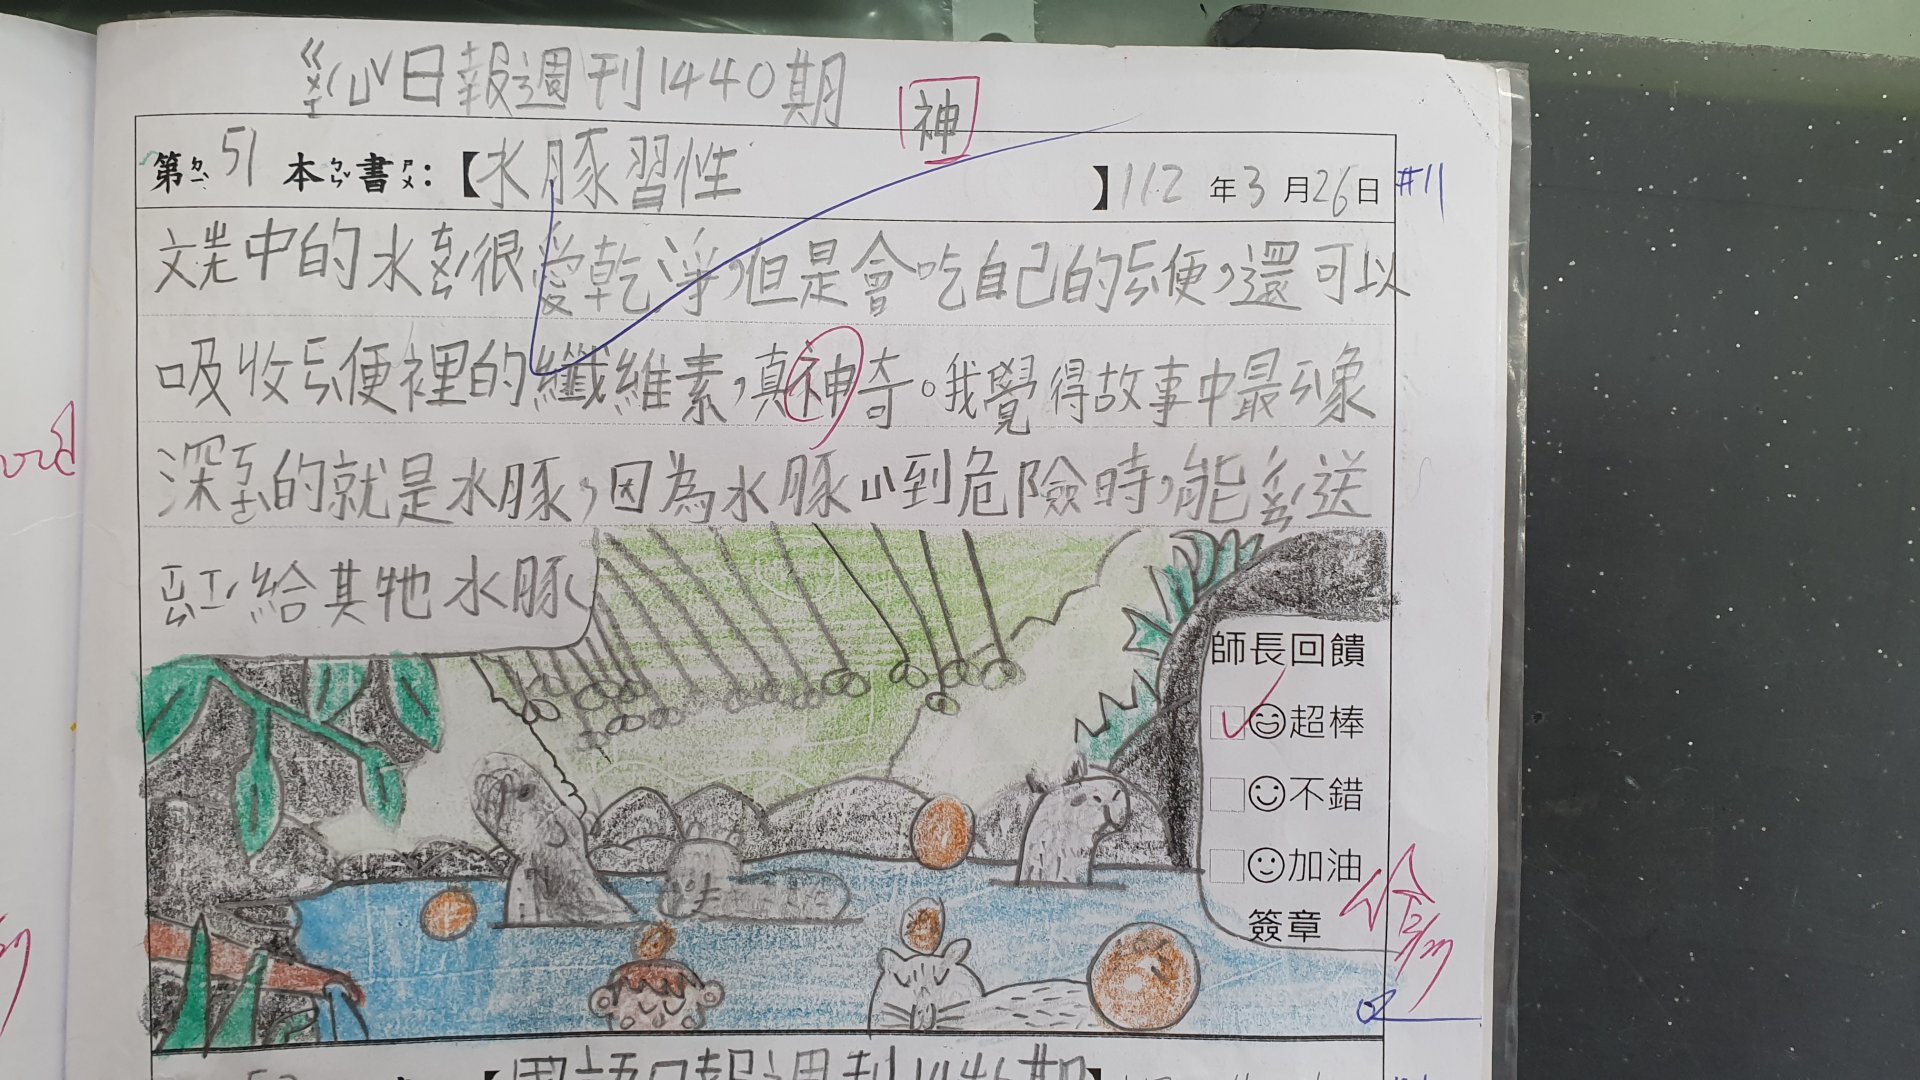 ㄍㄨㄛˊㄩˇ日報週刊1440期
神
第ㄉㄧˋ 51 本ㄅㄣˇ書ㄕㄨ:【水豚習性】112年3月26日 #11
文ㄓㄤ中的水ㄊㄨㄣˊ很愛乾淨,但是會吃自己的ㄈㄣˋ便,還可以
吸收ㄈㄣˋ便裡的纖維素,真神奇。我覺得故事中最ㄧㄣˋ象
深ㄎㄜˋ的就是水豚,因為水豚ㄩˋ到危險時,能ㄈㄚ送
給其牠水豚
師長回饋
超棒
不錯
加油
簽章